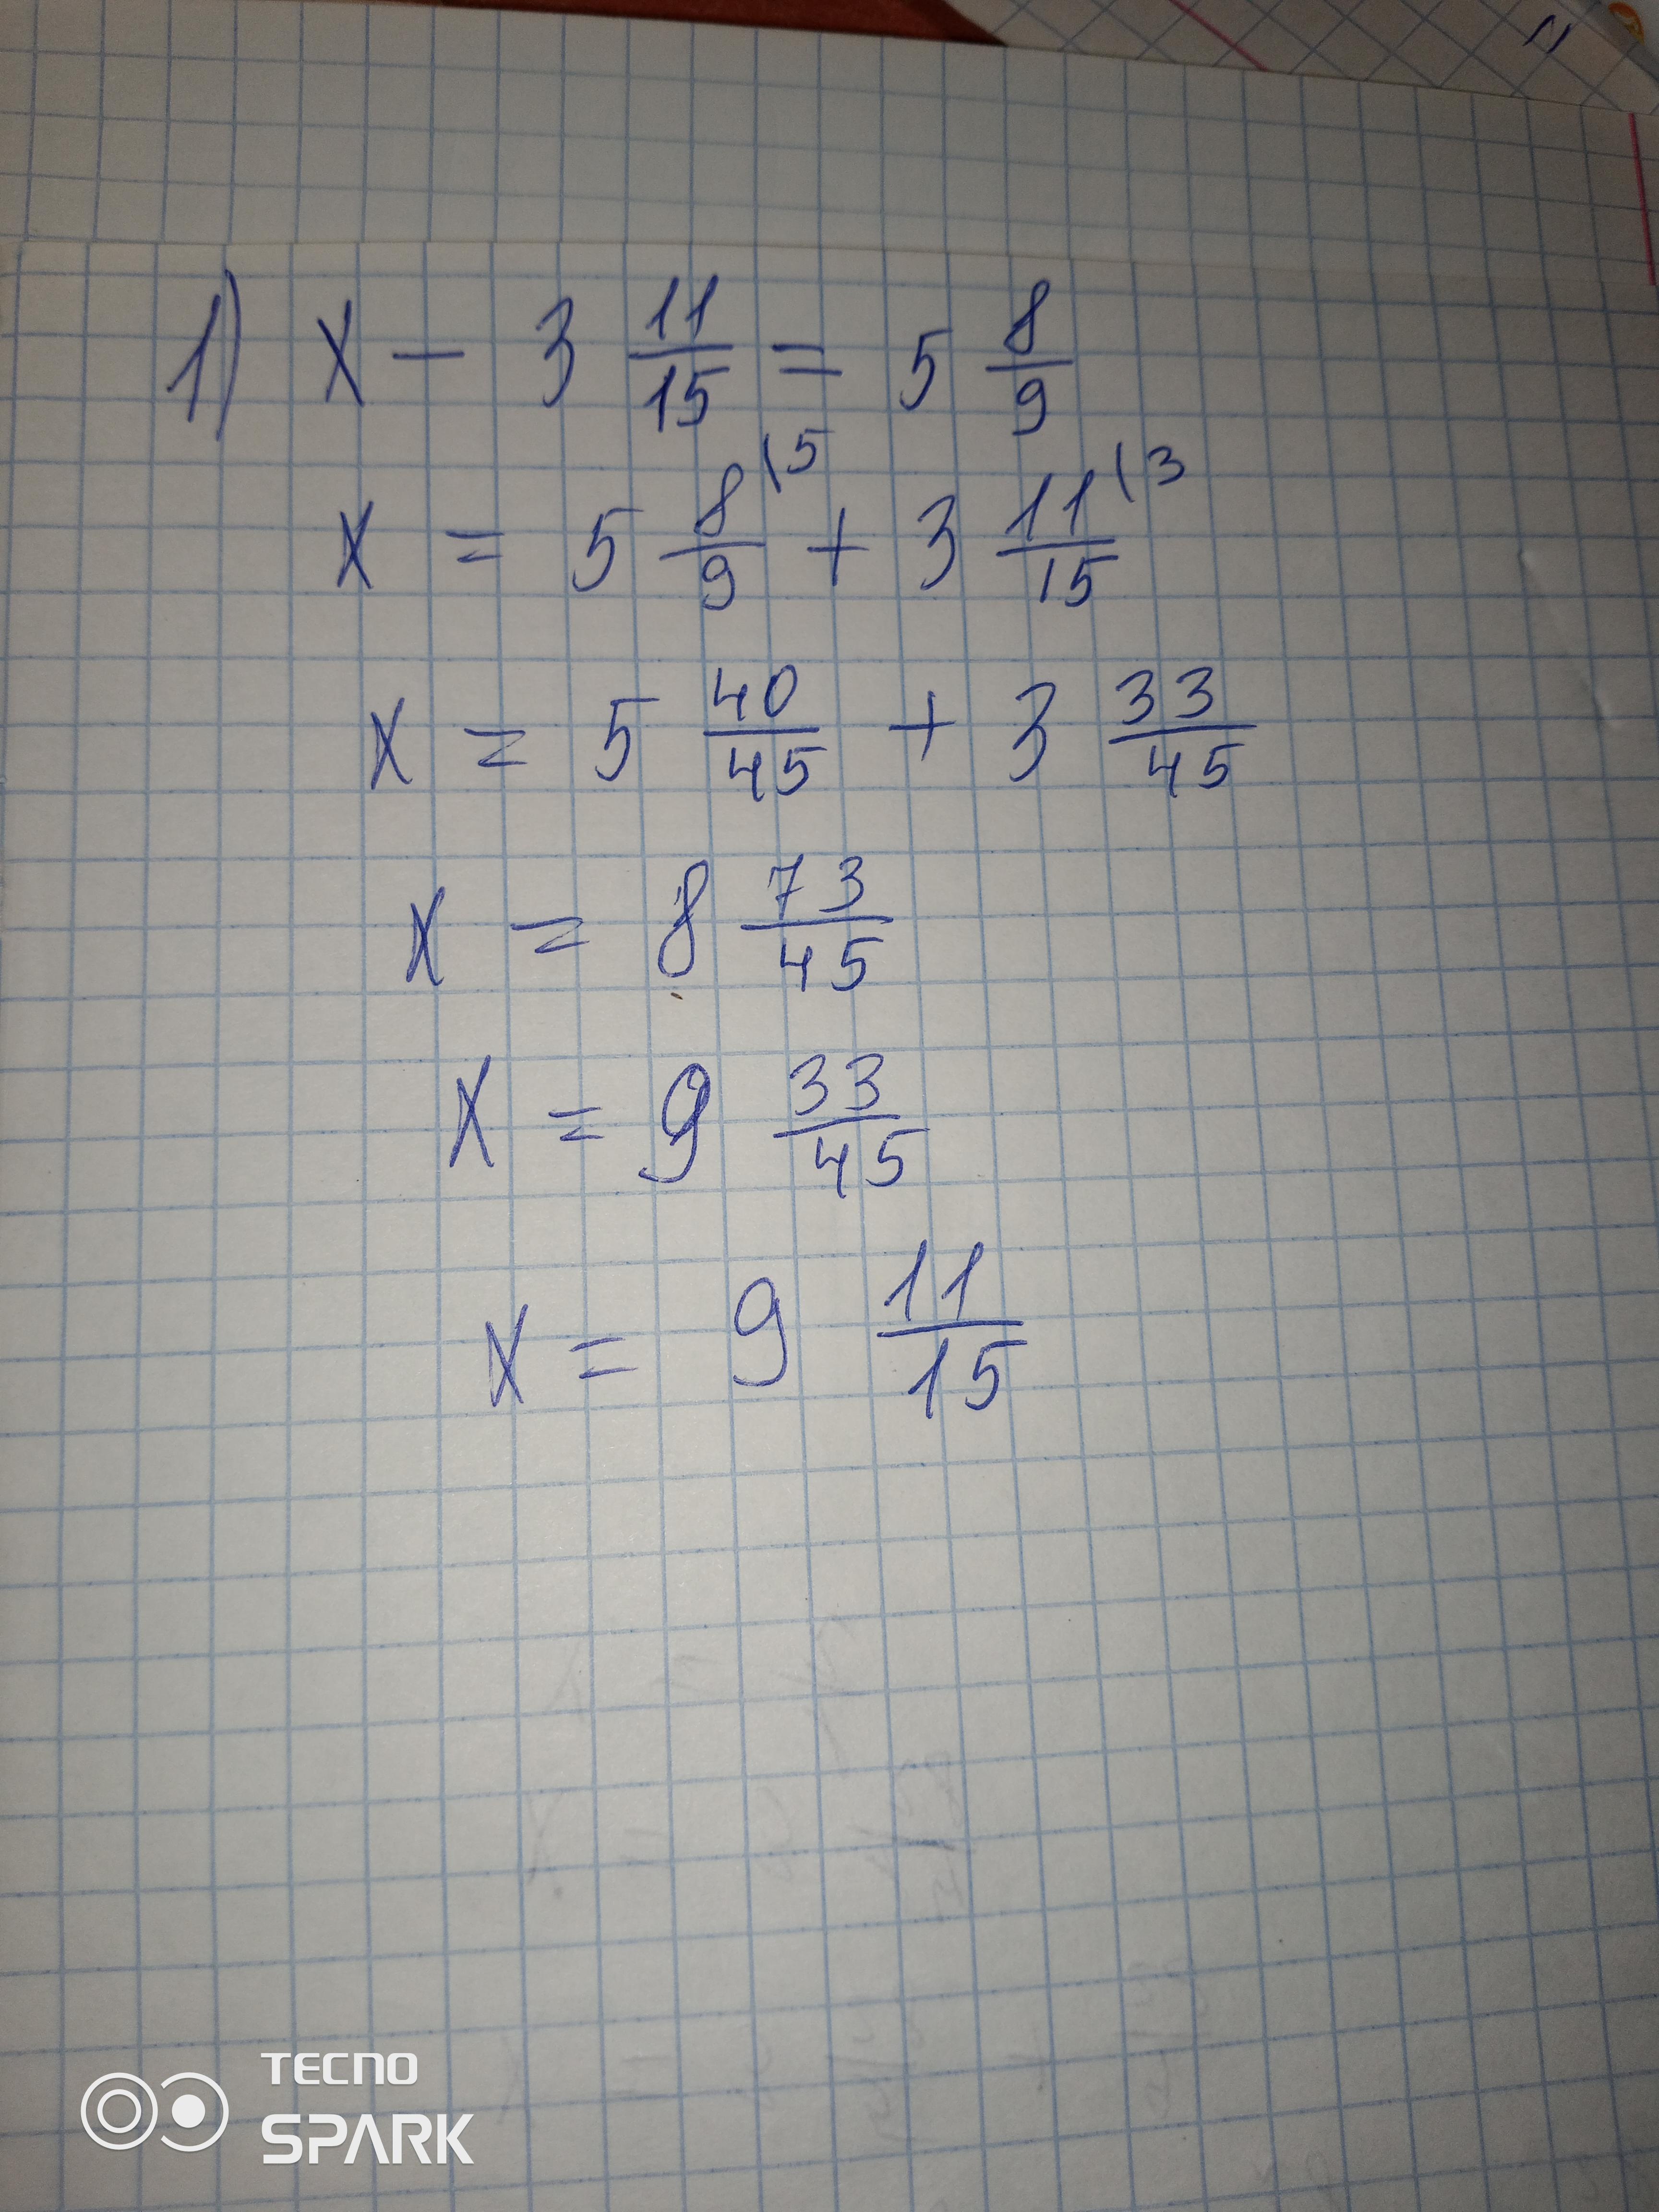 1) x - 3 11/15 = 5 8/9
x = 5 8/9 \5 + 3 11/15 \3
x = 5 40/45 + 3 33/45
x = 8 73/45
x = 9 33/45
x = 9 11/15
TECNO
SPARK